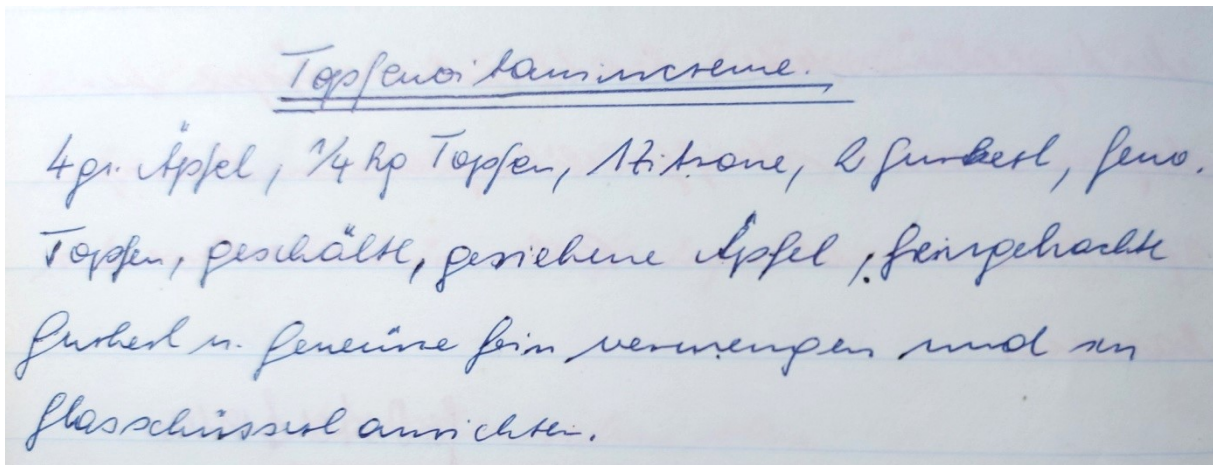 Topfenvitamincreme.
4 gr. Äpfel, 1/4 kg Topfen, 1 Zitrone, 2 Gurkerl, Gew.
Topfen, geschälte, geriebene Äpfel, feingehackte
Gurkerl u. Gewürze fein vermengen und in
Glasschüsserl anrichten.